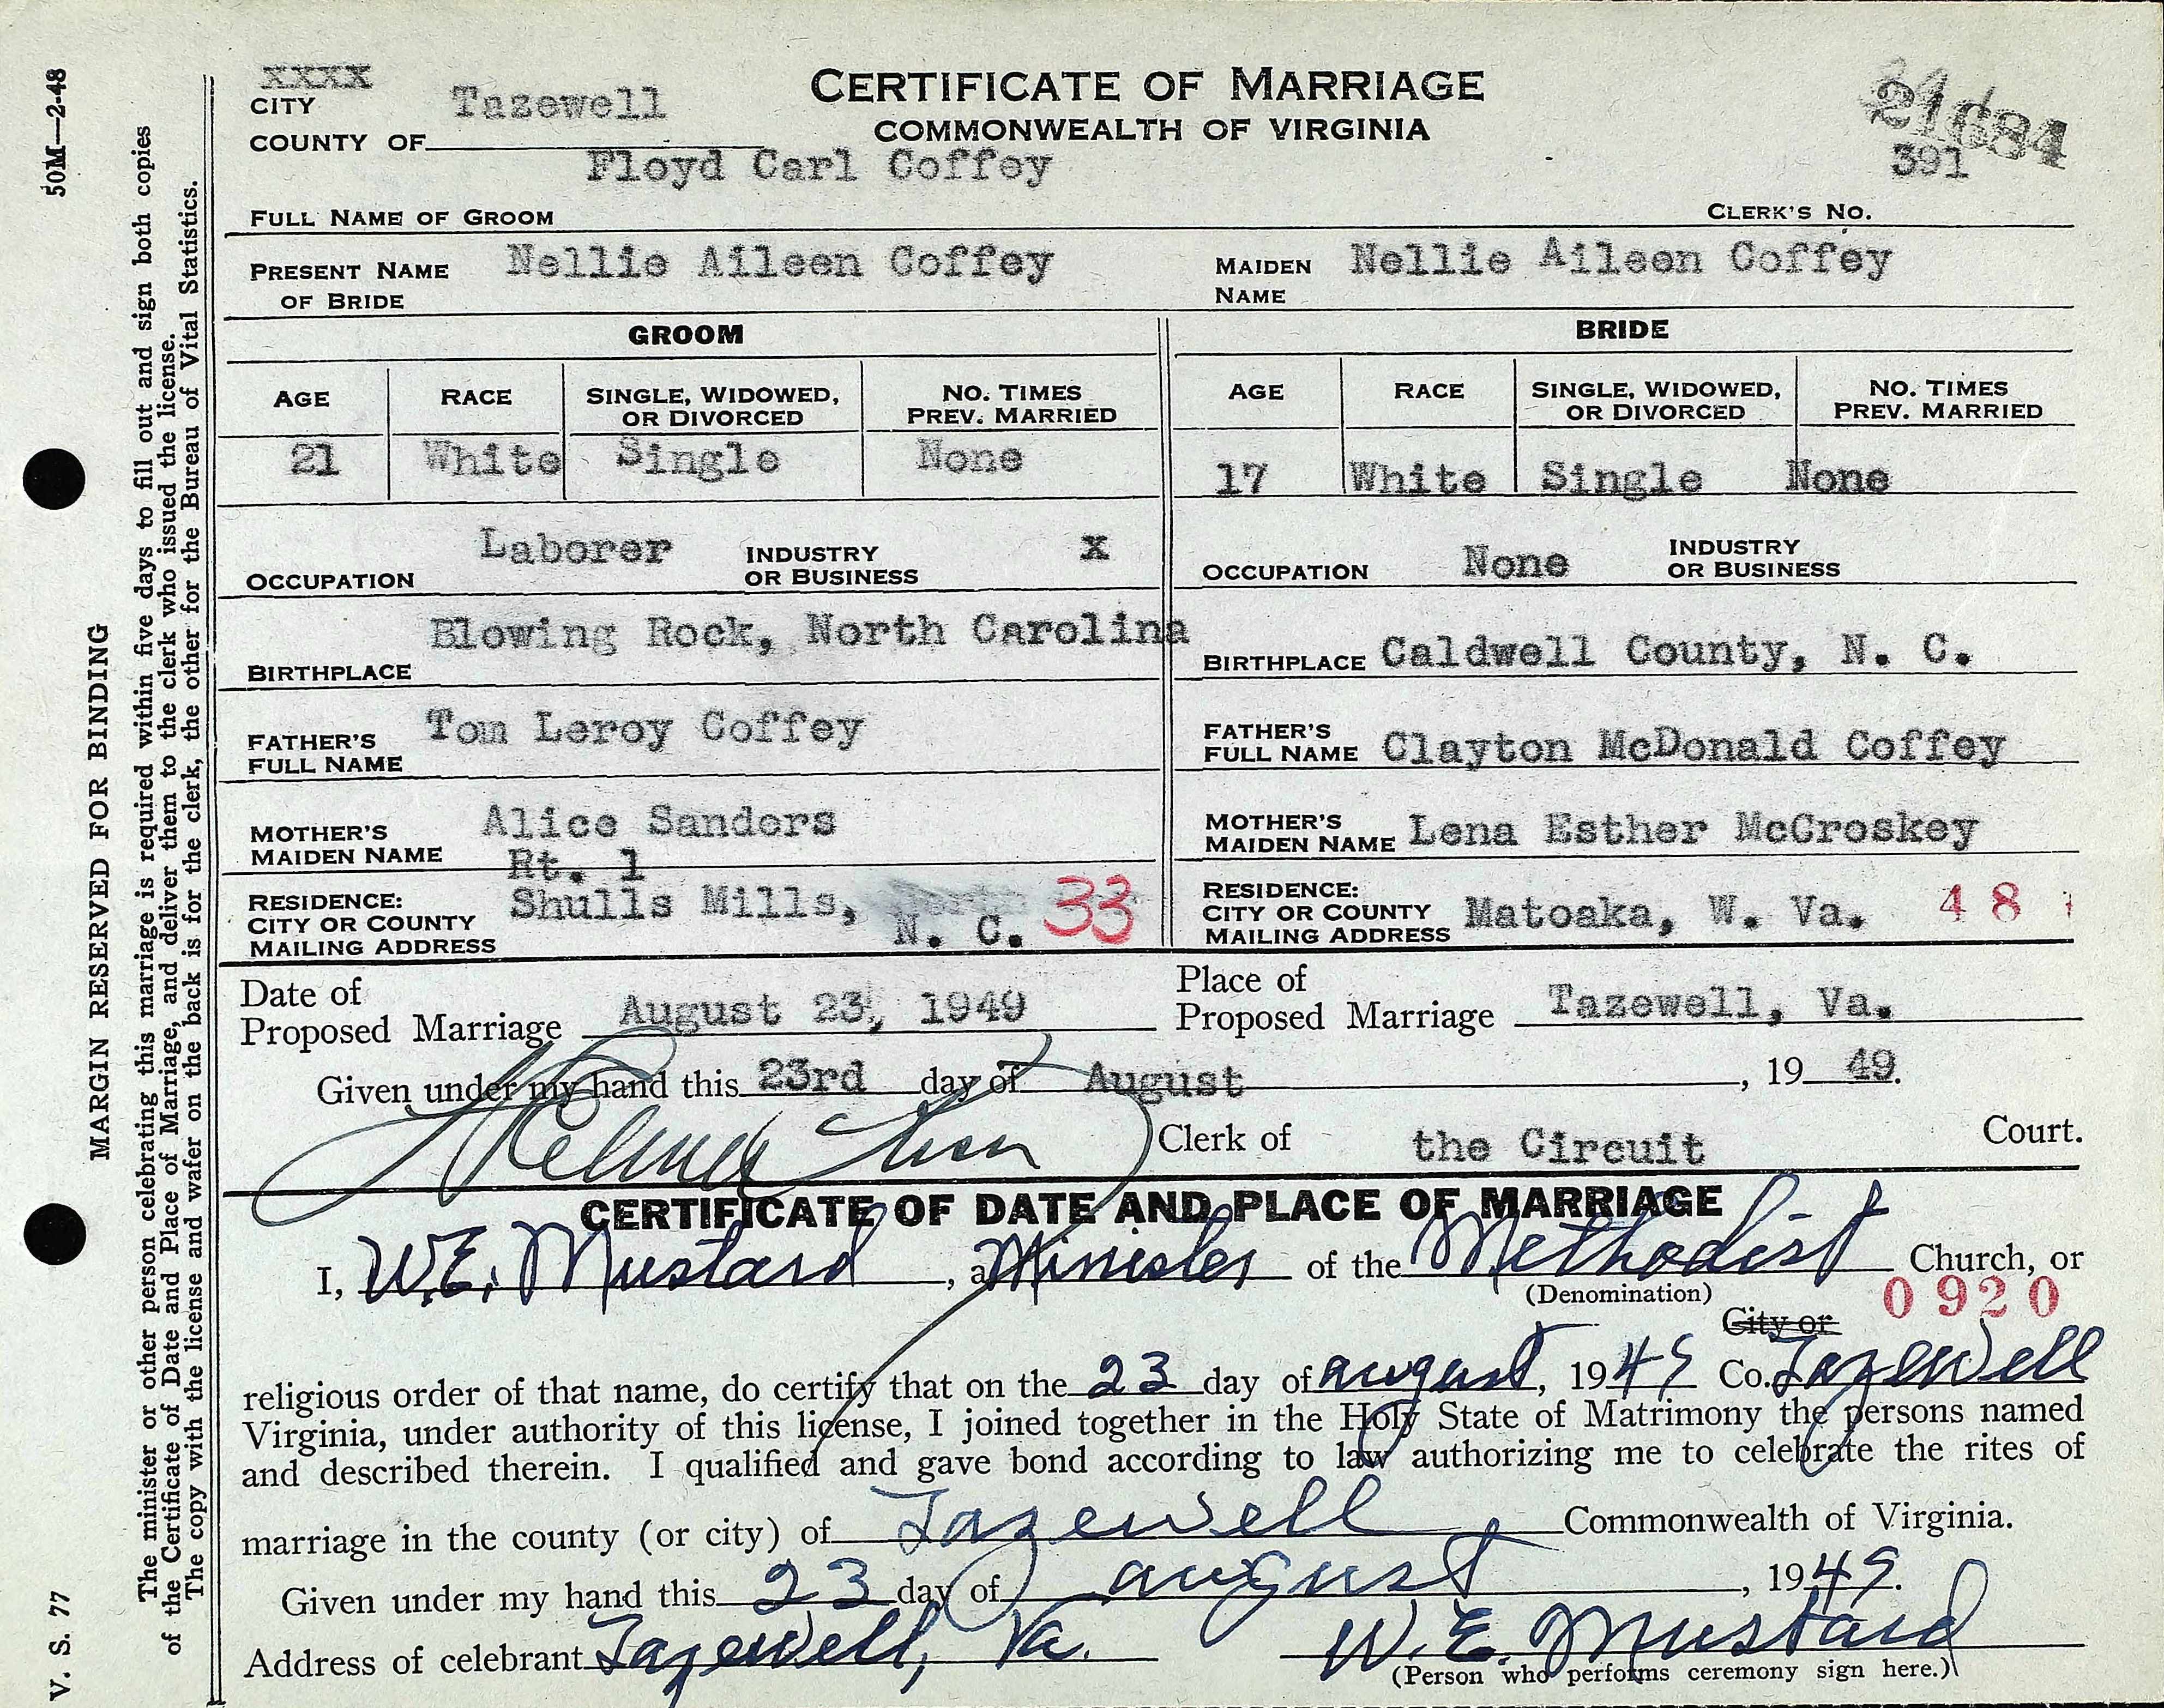 50M—2-48
MARGIN RESERVED FOR BINDING
V. S. 77
The minister or other person celebrating this marriage is required within five days to fill out and sign both copies
of the Certificate of Date and Place of Marriage, and deliver them to the clerk who issued the license.
The copy with the license and wafer on the back is for the clerk, the other for the Bureau of Vital Statistics.
XXXX
CITY
COUNTY OF Tazewell
CERTIFICATE OF MARRIAGE
COMMONWEALTH OF VIRGINIA
391
FULL NAME OF GROOM Floyd Carl Coffey CLERK'S NO.
PRESENT NAME OF BRIDE Nellie Aileen Coffey MAIDEN NAME Nellie Aileen Coffey
GROOM BRIDE
AGE RACE SINGLE, WIDOWED, OR DIVORCED NO. TIMES PREV. MARRIED AGE RACE SINGLE, WIDOWED, OR DIVORCED NO. TIMES PREV. MARRIED
21 White Single None 17 White Single None
OCCUPATION Laborer INDUSTRY OR BUSINESS x OCCUPATION None INDUSTRY OR BUSINESS
BIRTHPLACE Blowing Rock, North Carolina BIRTHPLACE Caldwell County, N. C.
FATHER'S FULL NAME Tom Leroy Coffey FATHER'S FULL NAME Clayton McDonald Coffey
MOTHER'S MAIDEN NAME Alice Sanders MOTHER'S MAIDEN NAME Lena Esther McCroskey
RESIDENCE: CITY OR COUNTY MAILING ADDRESS Rt. 1 Shulls Mills, N. C. 33 RESIDENCE: CITY OR COUNTY MAILING ADDRESS Matoaka, W. Va. 48
Date of Proposed Marriage August 23, 1949 Place of Proposed Marriage Tazewell, Va.
Given under my hand this 23rd day of August, 1949.
Clerk of the Circuit Court.
CERTIFICATE OF DATE AND PLACE OF MARRIAGE
I, W. E. Mustard, a Minister of the Methodist Church, or
(Denomination)
0920
City or
religious order of that name, do certify that on the 23 day of august, 1949 Co. Tazewell
Virginia, under authority of this license, I joined together in the Holy State of Matrimony the persons named
and described therein. I qualified and gave bond according to law authorizing me to celebrate the rites of
marriage in the county (or city) of Tazewell, Commonwealth of Virginia.
Given under my hand this 23 day of august, 1949.
Address of celebrant Tazewell, Va. W. E. Mustard
(Person who performs ceremony sign here.)